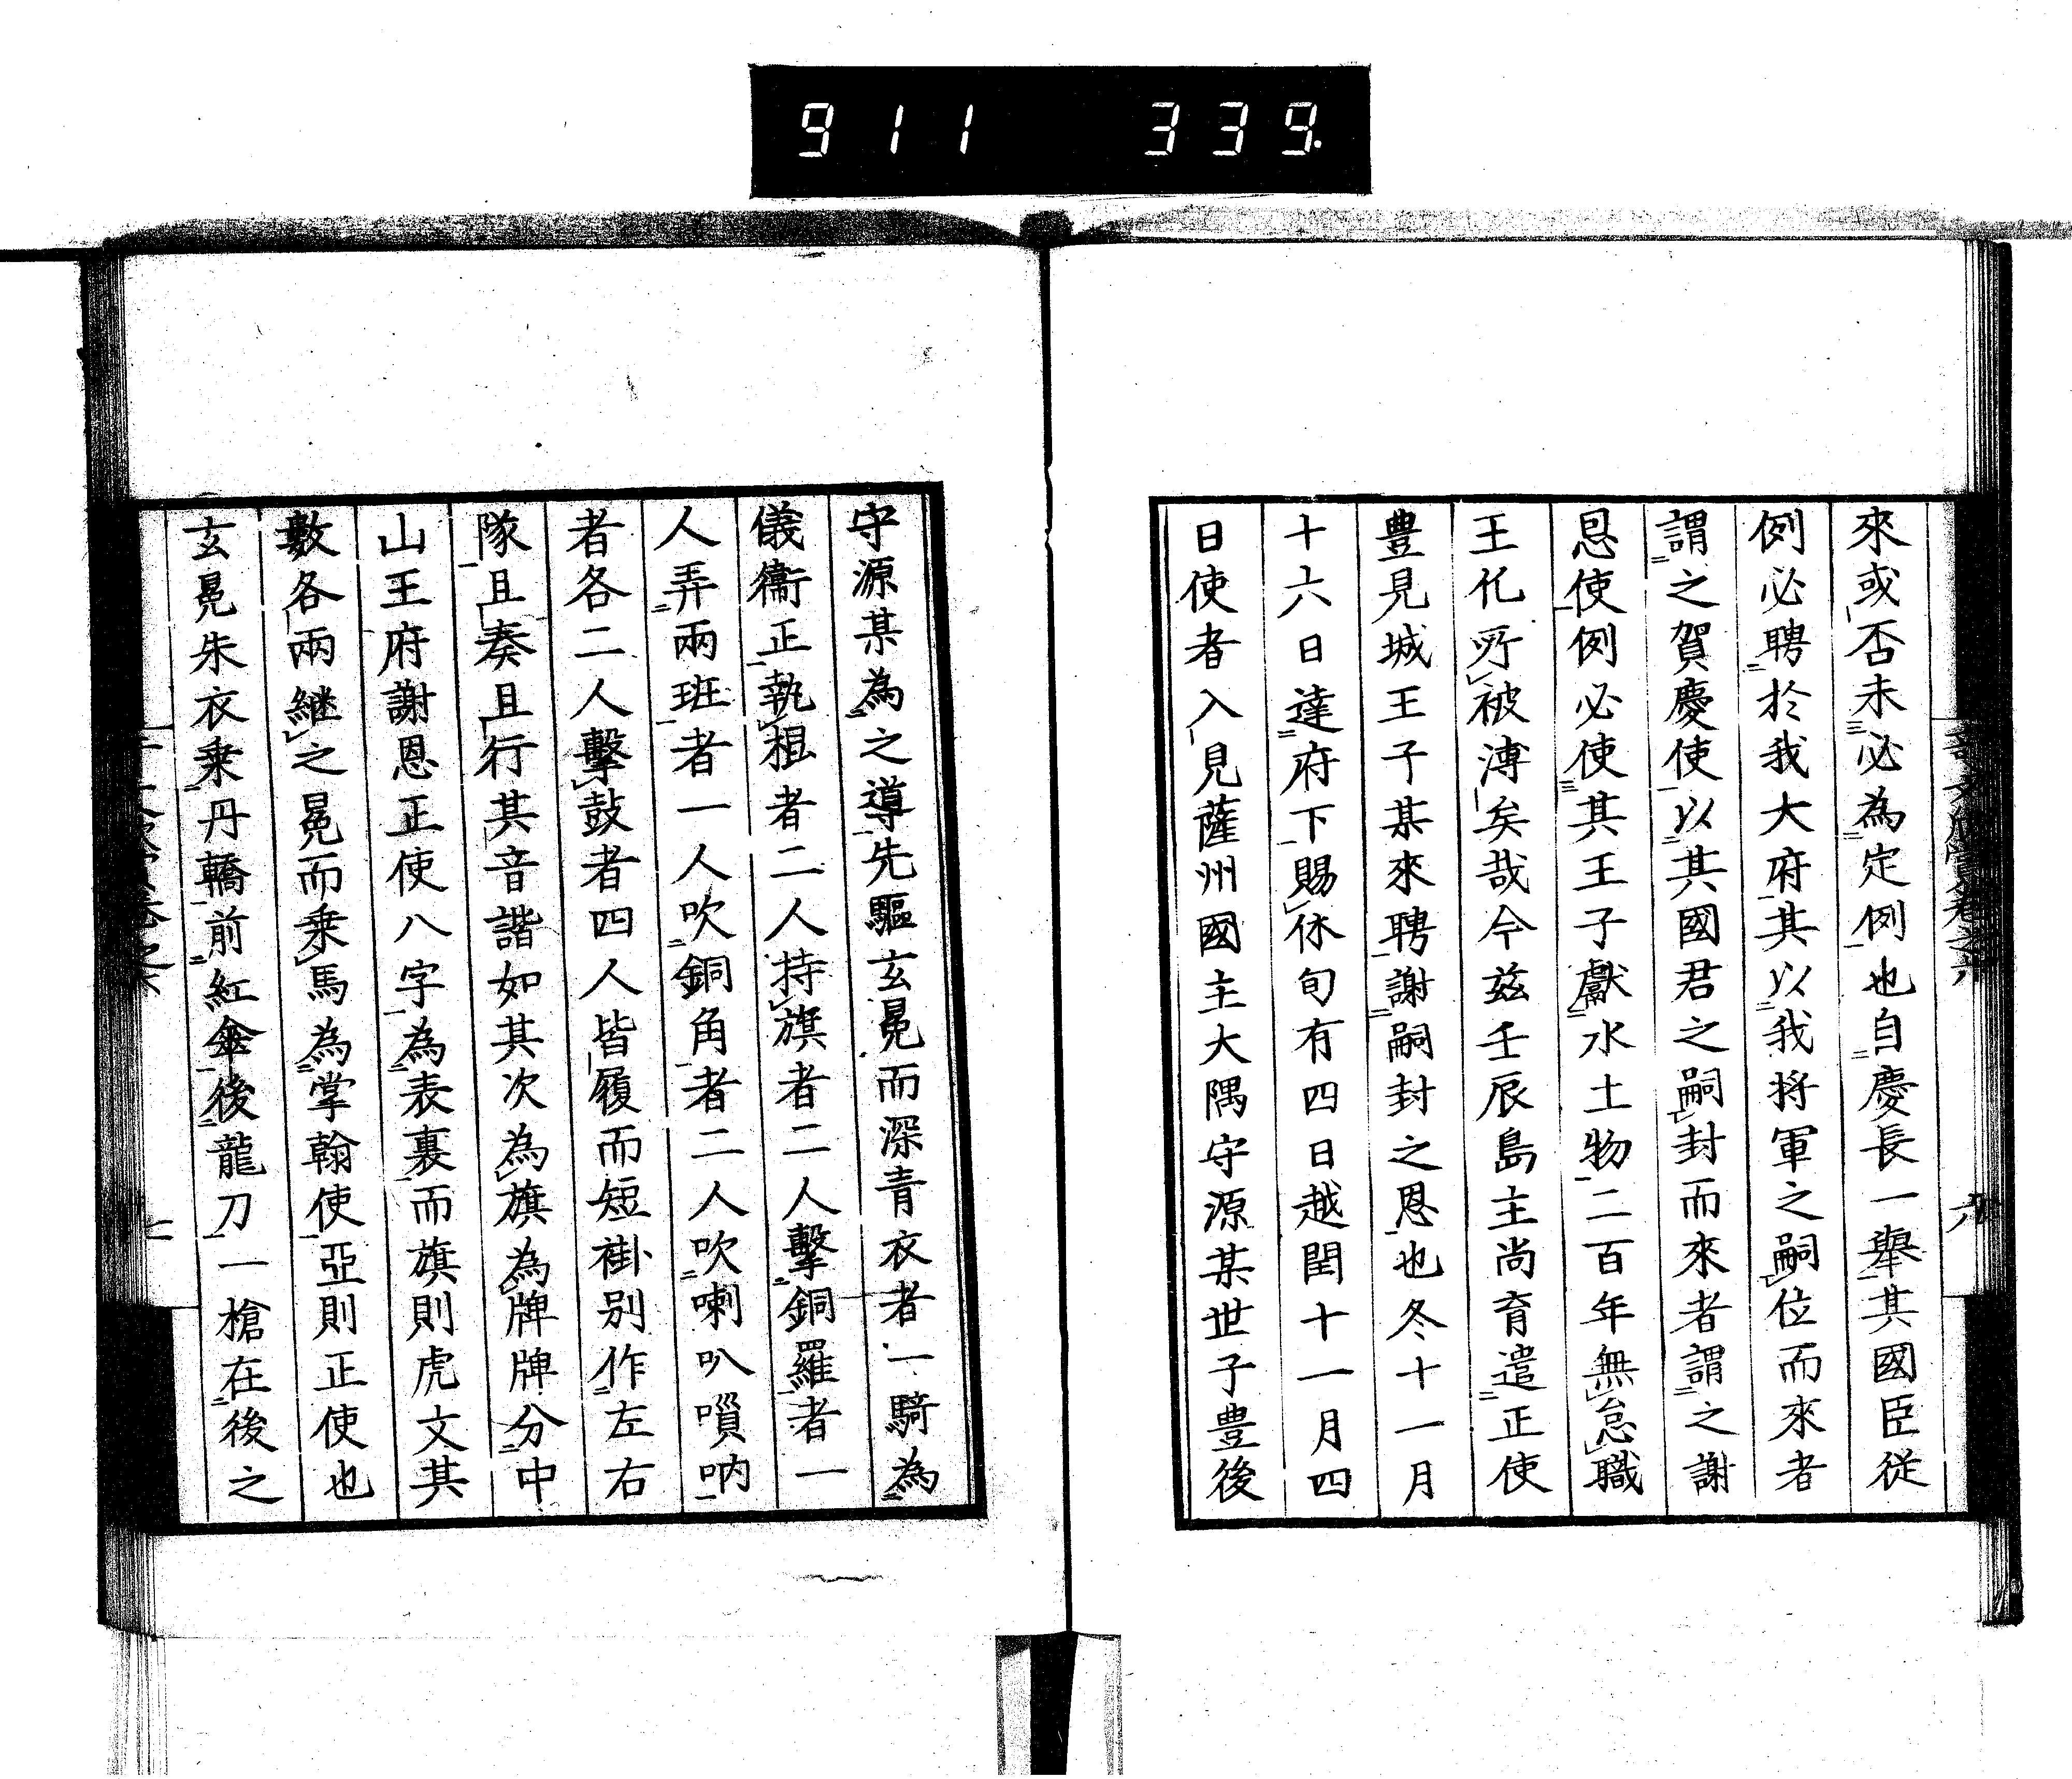 911 339.
來或否未必為定例也自慶長一舉其國臣従
例必聘於我大府其以我将軍之嗣位而來者
謂之賀慶使以其國君之嗣封而來者謂之謝
恩使例必使其王子獻水土物二百年無怠職
王化所被溥矣哉今茲壬辰島主尚育遣正使
豊見城王子某來聘謝嗣封之恩也冬十一月
十六日達府下賜休旬有四日越閏十一月四
日使者入見薩州國主大隅守源某世子豊後
守源某為之導先驅玄冕而深青衣者一騎為
儀衛正執棍者二人持旗者二人擊銅羅者一
人弄兩班者一人吹銅角者二人吹喇叭嗩吶
者各二人擊鼓者四人皆履而短褂别作左右
隊且奏且行其音諧如其次為旗為牌牌分中
山王府謝恩正使八字為表裏而旗則虎文其
數各兩継之冕而乗馬為掌翰使亞則正使也
玄冕朱衣乗丹轎前紅傘後龍刀一槍在後之